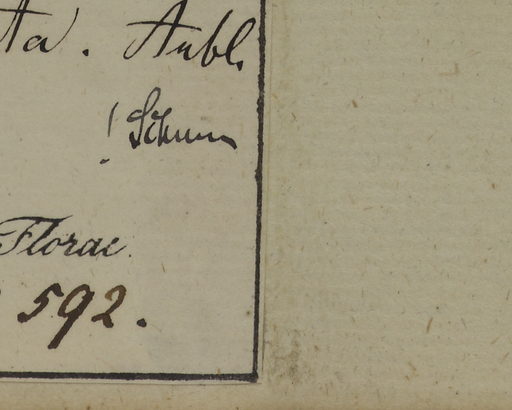 ta. Aubl.
! Schum
Florae
592.